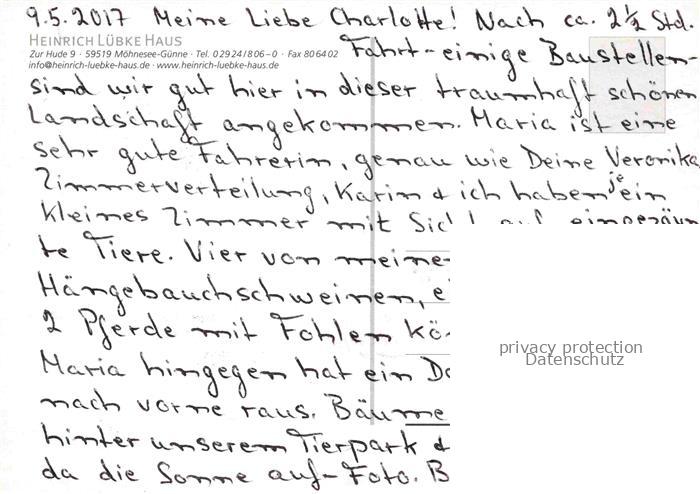 9.5.2017 Meine Liebe Charlotte! Nach ca. 2½ Std.
HEINRICH LÜBKE HAUS
Zur Hude 9 · 59519 Möhnesee-Günne · Tel. 02924/806-0 · Fax 806402
Fahrt-einige Baustellen-
info@heinrich-luebke-haus.de · www.heinrich-luebke-haus.de
sind wir gut hier in dieser traumhaft schönen
Landschaft angekommen. Maria ist eine
sehr gute Fahrerin, genau wie Deine Veronika.
Zimmerverteilung, Karin & ich haben je ein
kleines Zimmer mit auf
te Tiere. Vier von meine-
Hängebauchschweinen,
2 Pferde mit Fohlen
Maria hingegen hat ein
nach vorne raus. Bäume
hinter unserem Tierpark &
da die Sonne auf-Foto.
privacy protection
Datenschutz